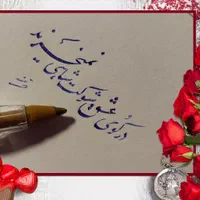 در کوی عشق شوکت شاهی نمیخرند